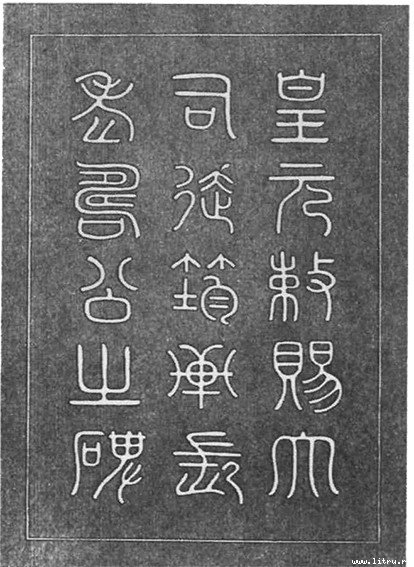 皇元敕賜大
司徒筠軒長
老壽公之碑
www.litru.r